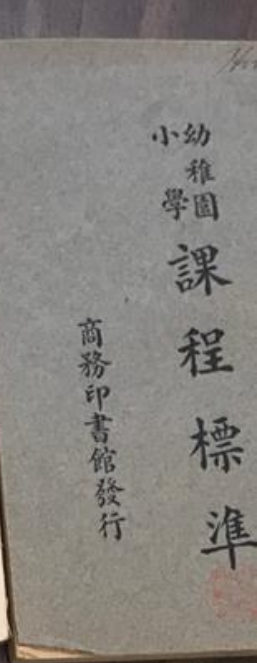 幼稚園
小學
課程標準
商務印書館發行